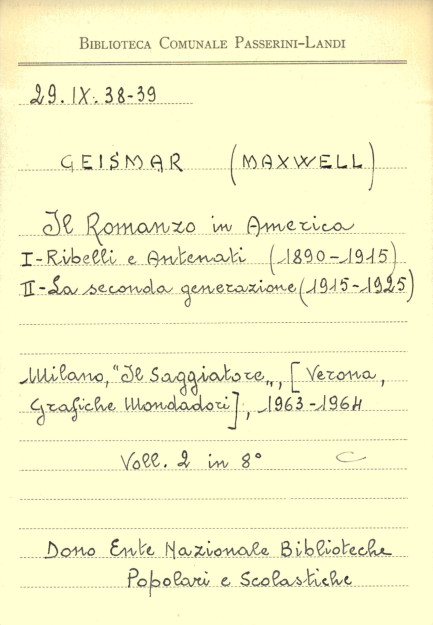 BIBLIOTECA COMUNALE PASSERINI-LANDI
29. IX. 38-39
GEISMAR (MAXWELL)
Il Romanzo in America
I-Ribelli e Antenati (1890-1915)
II-La seconda generazione (1915-1925)
Milano, "Il Saggiatore„, [Verona,
Grafiche Mondadori], 1963-1964
Voll. 2 in 8° C
Dono Ente Nazionale Biblioteche
Popolari e Scolastiche